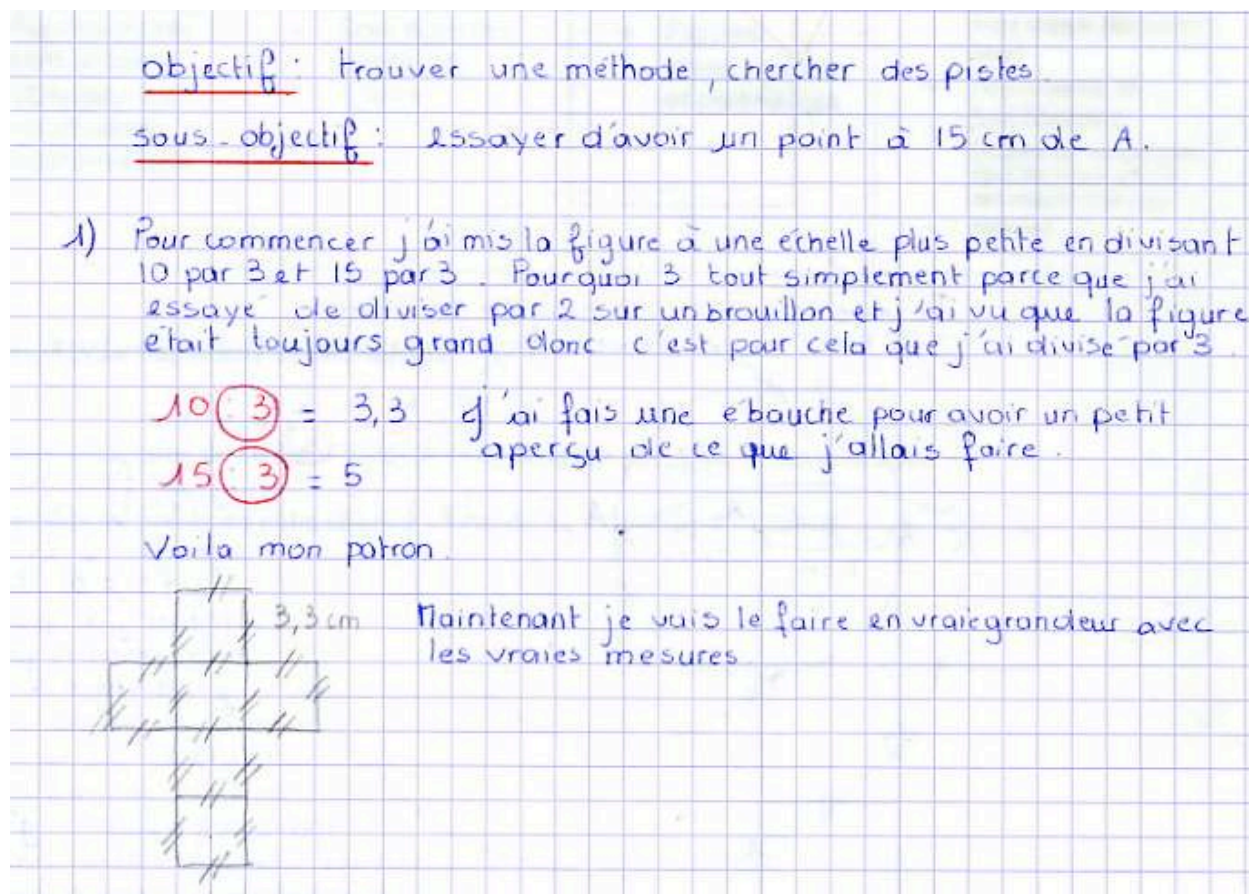 objectif : trouver une méthode, chercher des pistes.
sous-objectif : essayer d'avoir un point à 15 cm de A.
1) Pour commencer j'ai mis la figure à une échelle plus petite en divisant
10 par 3 et 15 par 3. Pourquoi 3 tout simplement parce que j'ai
essayé de diviser par 2 sur un brouillon et j'ai vu que la figure
était toujours grand donc c'est pour cela que j'ai divisé par 3.
10 : 3 = 3,3 J'ai fais une ébauche pour avoir un petit
aperçu de ce que j'allais faire.
15 : 3 = 5
Voila mon patron.
3,3 cm Maintenant je vais le faire en vraie grandeur avec
les vraies mesures